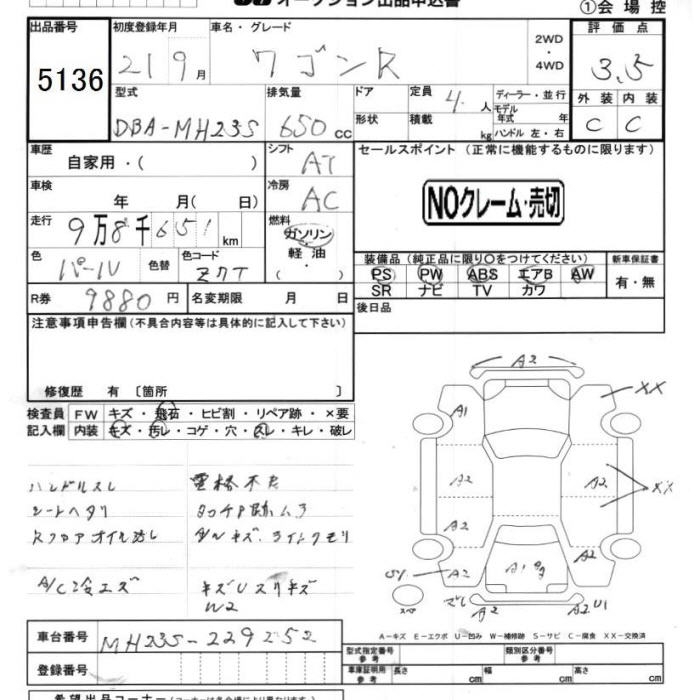 オークション出品申込書
①会場控
出品番号
5136
初度登録年月
21 9月
車名・グレード
ワゴンR
2WD
・
4WD
評価点
3.5
型式
DBA-MH23S
排気量
650cc
ドア
形状
定員 4人
積載 kg
ディーラー・並行
モデル年式 年
ハンドル 左・右
外装 内装
C C
車歴
自家用・( )
シフト
AT
車検
年 月( 日)
冷房
AC
走行
9万8千651km
燃料
ガソリン
軽油
・
( )
色
パール
色替
色コード
Z7T
R券 9880円
名変期限 月 日
セールスポイント(正常に機能するものに限ります)
NOクレーム・売切
装備品(純正品に限り○をつけてください)
新車保証書
PS PW ABS エアB AW
SR ナビ TV カワ
有・無
後日品
注意事項申告欄(不具合内容等は具体的に記入して下さい)
修復歴 有〔箇所 〕
検査員 FW キズ・飛石・ヒビ割・リペア跡・×要
記入欄 内装 キズ・汚レ・コゲ・穴・スレ・キレ・破レ
ハンドルスレ
シートヘタリ
A/C冷エズ
電格不良
タッチP跡ムラ
ライトクモリ
W2
A2
XX
A1
A2
A2
XX
A2
A2
A2
A2
A2 U1
スペア
A-キズ E-エクボ U-凹み W-補修跡 S-サビ C-腐食 XX-交換済
車台番号 MH23S-229252
登録番号
型式指定番号
参考
類別区分番号
参考
車庫証明用
参考
長さ cm 幅 cm 高さ cm
希望出品コーナー